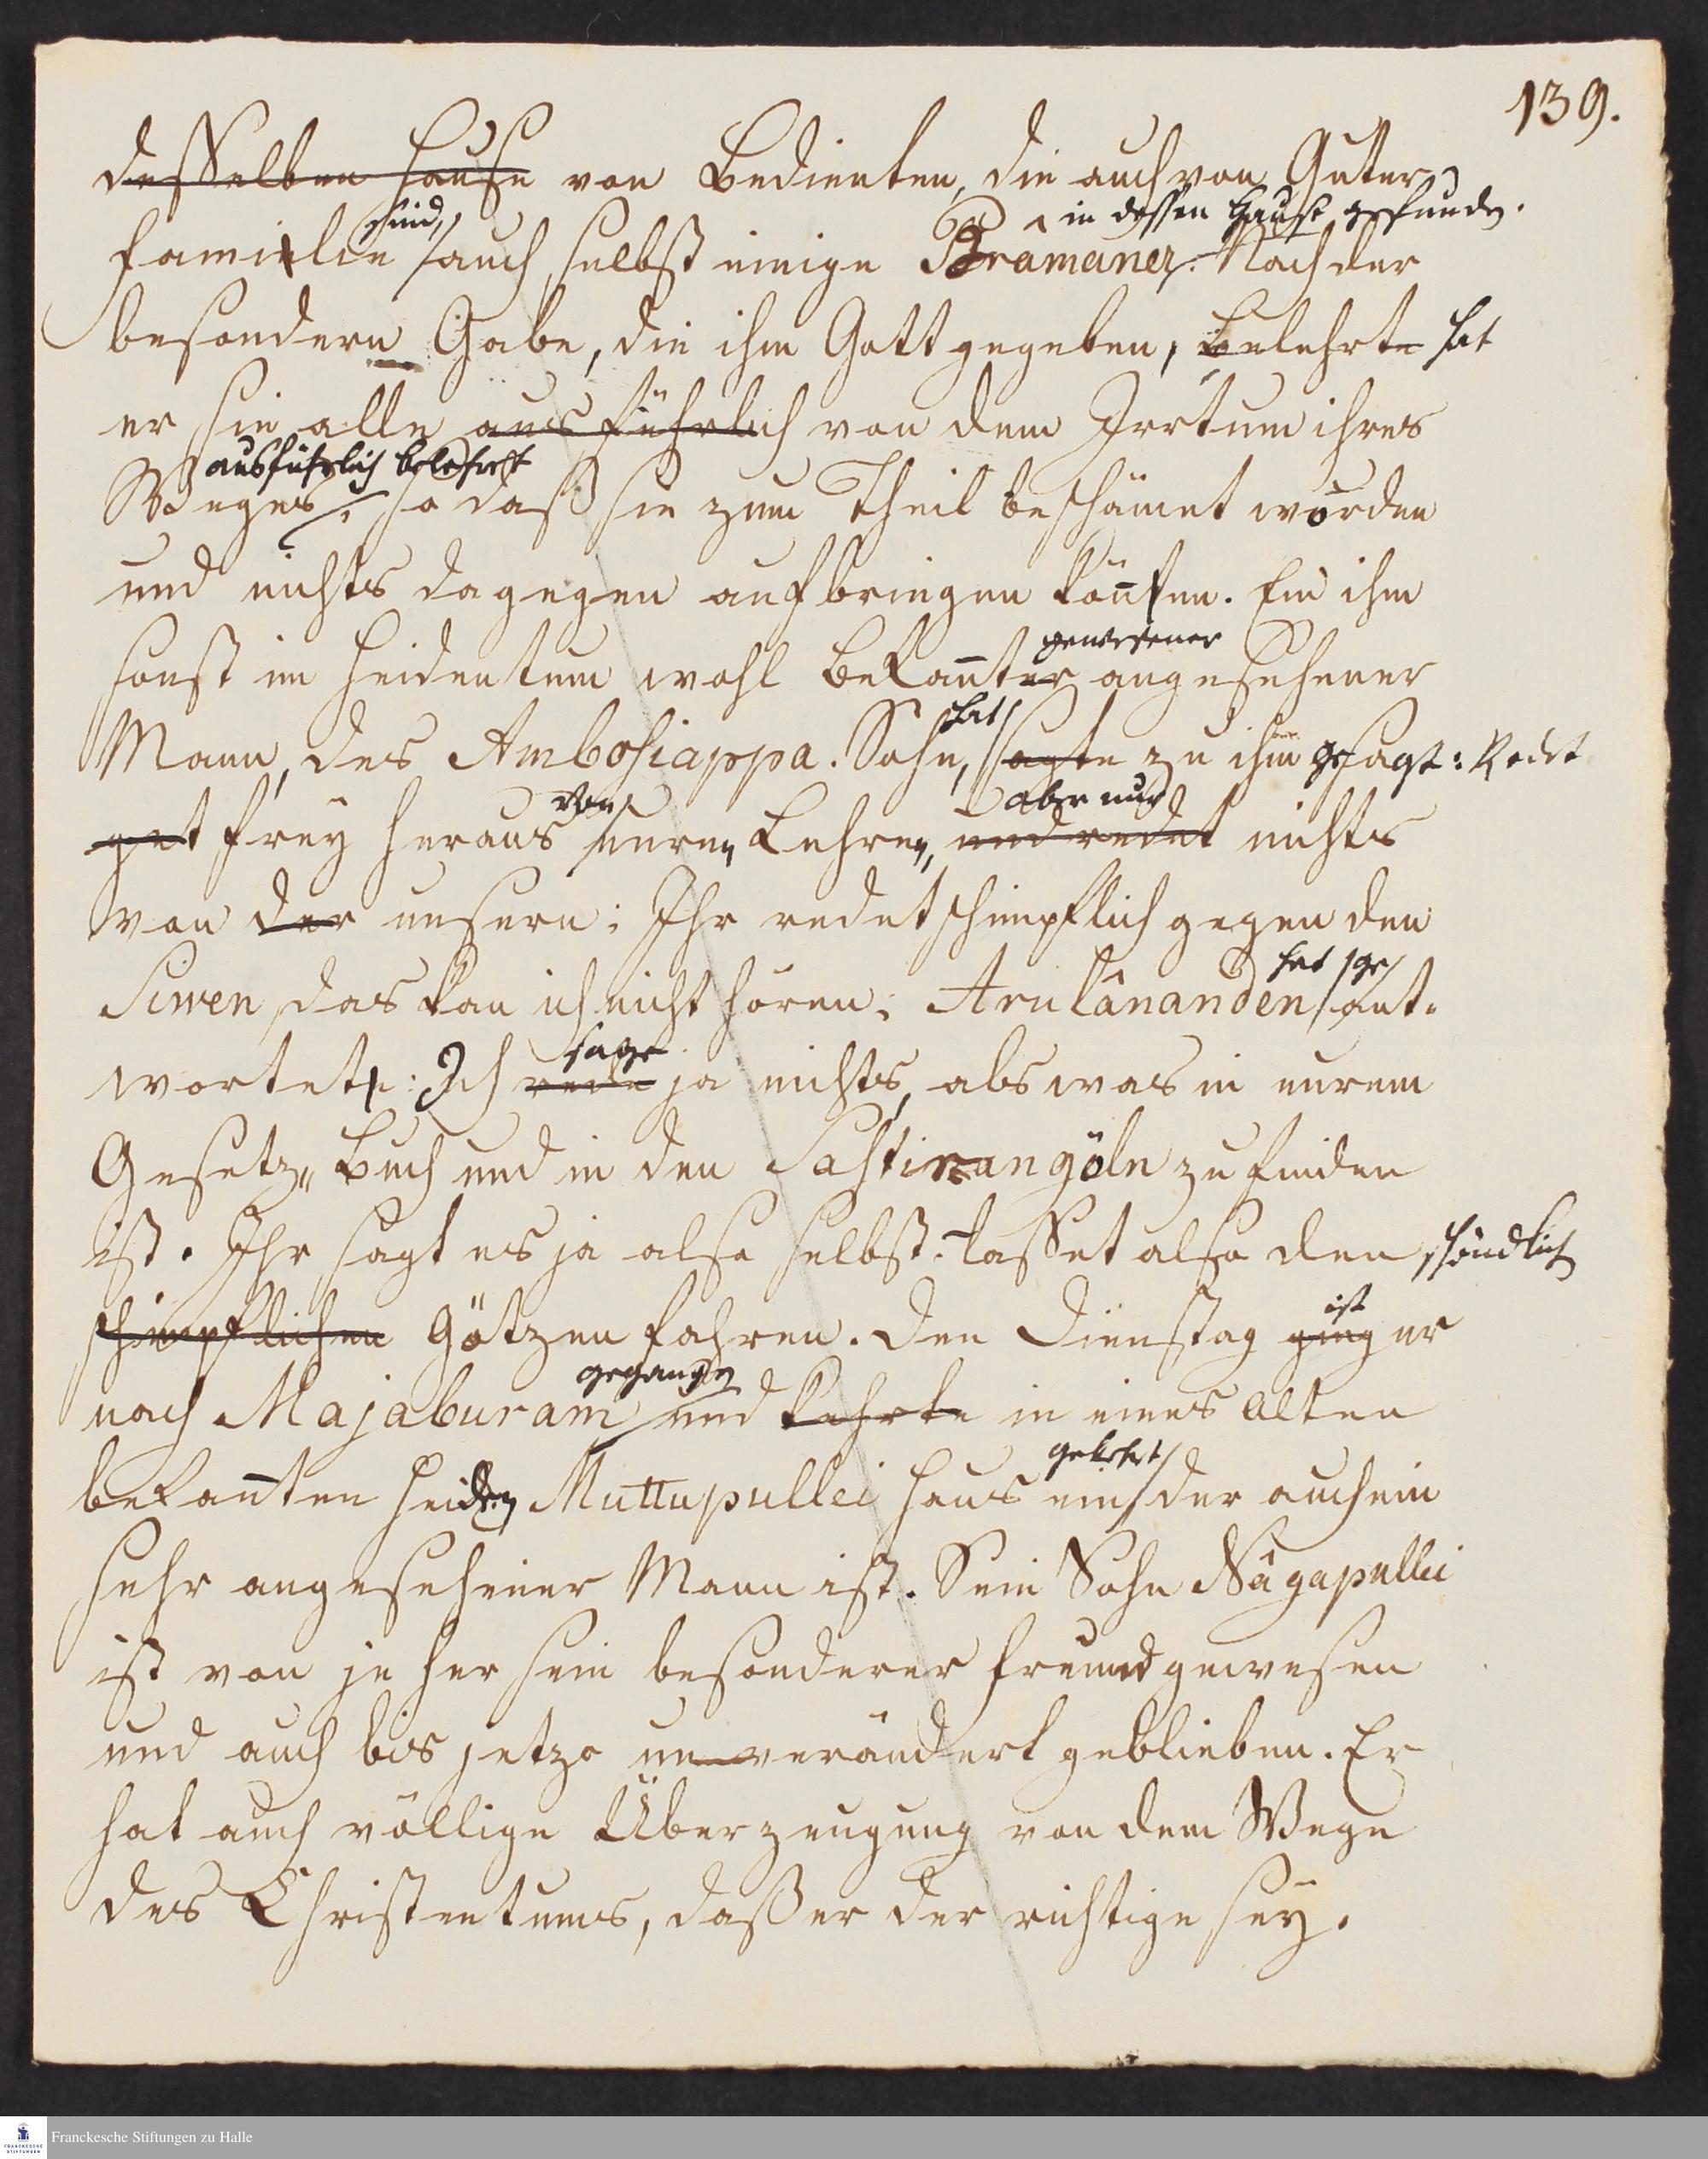 139.
desselben Hause von Bedienten, die auch von Guter
sind, in dessen Hause gefunden.
familie auch selbst einige Bramaner. Nach der
besondern Gabe, die ihm Gott gegeben, belehrte hat
er sie alle ausführlich von dem Irrtum ihres
ausführlich belehret
Weges, so daß sie zum Theil beschämet worden
und nichts dagegen aufbringen könten. Ein ihm
gewesener
sonst im Heidentum wohl bekannter angesehener
hat
Mann, des Ambosiappa. Sohn, sagte zu ihm gesagt: Redet
von aber nur
get frey heraus euren Lehren, und redet nichts
von der unsern: Ihr redet schimpflich gegen den
hat ge
Siwen, das kan ich nicht hören: Arulânanden ant-
sage
wortete: Ich rede ja nichts, als was in eurem
Gesetz-Buch und in den Sastirangöln zu finden
ist. Ihr sagt es ja also selbst. Lasset also den schändlich
ist
schimpflichen Götzen fahren. Den Dienstag ging er
gegangen
nach Majaburam und kehrte in eines alten
gekehrt
bekannten Heiden Muttupullei Haus ein, der auch ein
sehr angesehener Mann ist. Sein Sohn Nâgapullei
ist von je her sein besonderer freund gewesen
und auch bis jetzo unverändert geblieben. Er
hat auch völlige Überzeugung von dem Wege
des Christentums, daß er der richtige sey.
Franckesche Stiftungen zu Halle
FRANCKESCHE
STIFTUNGEN